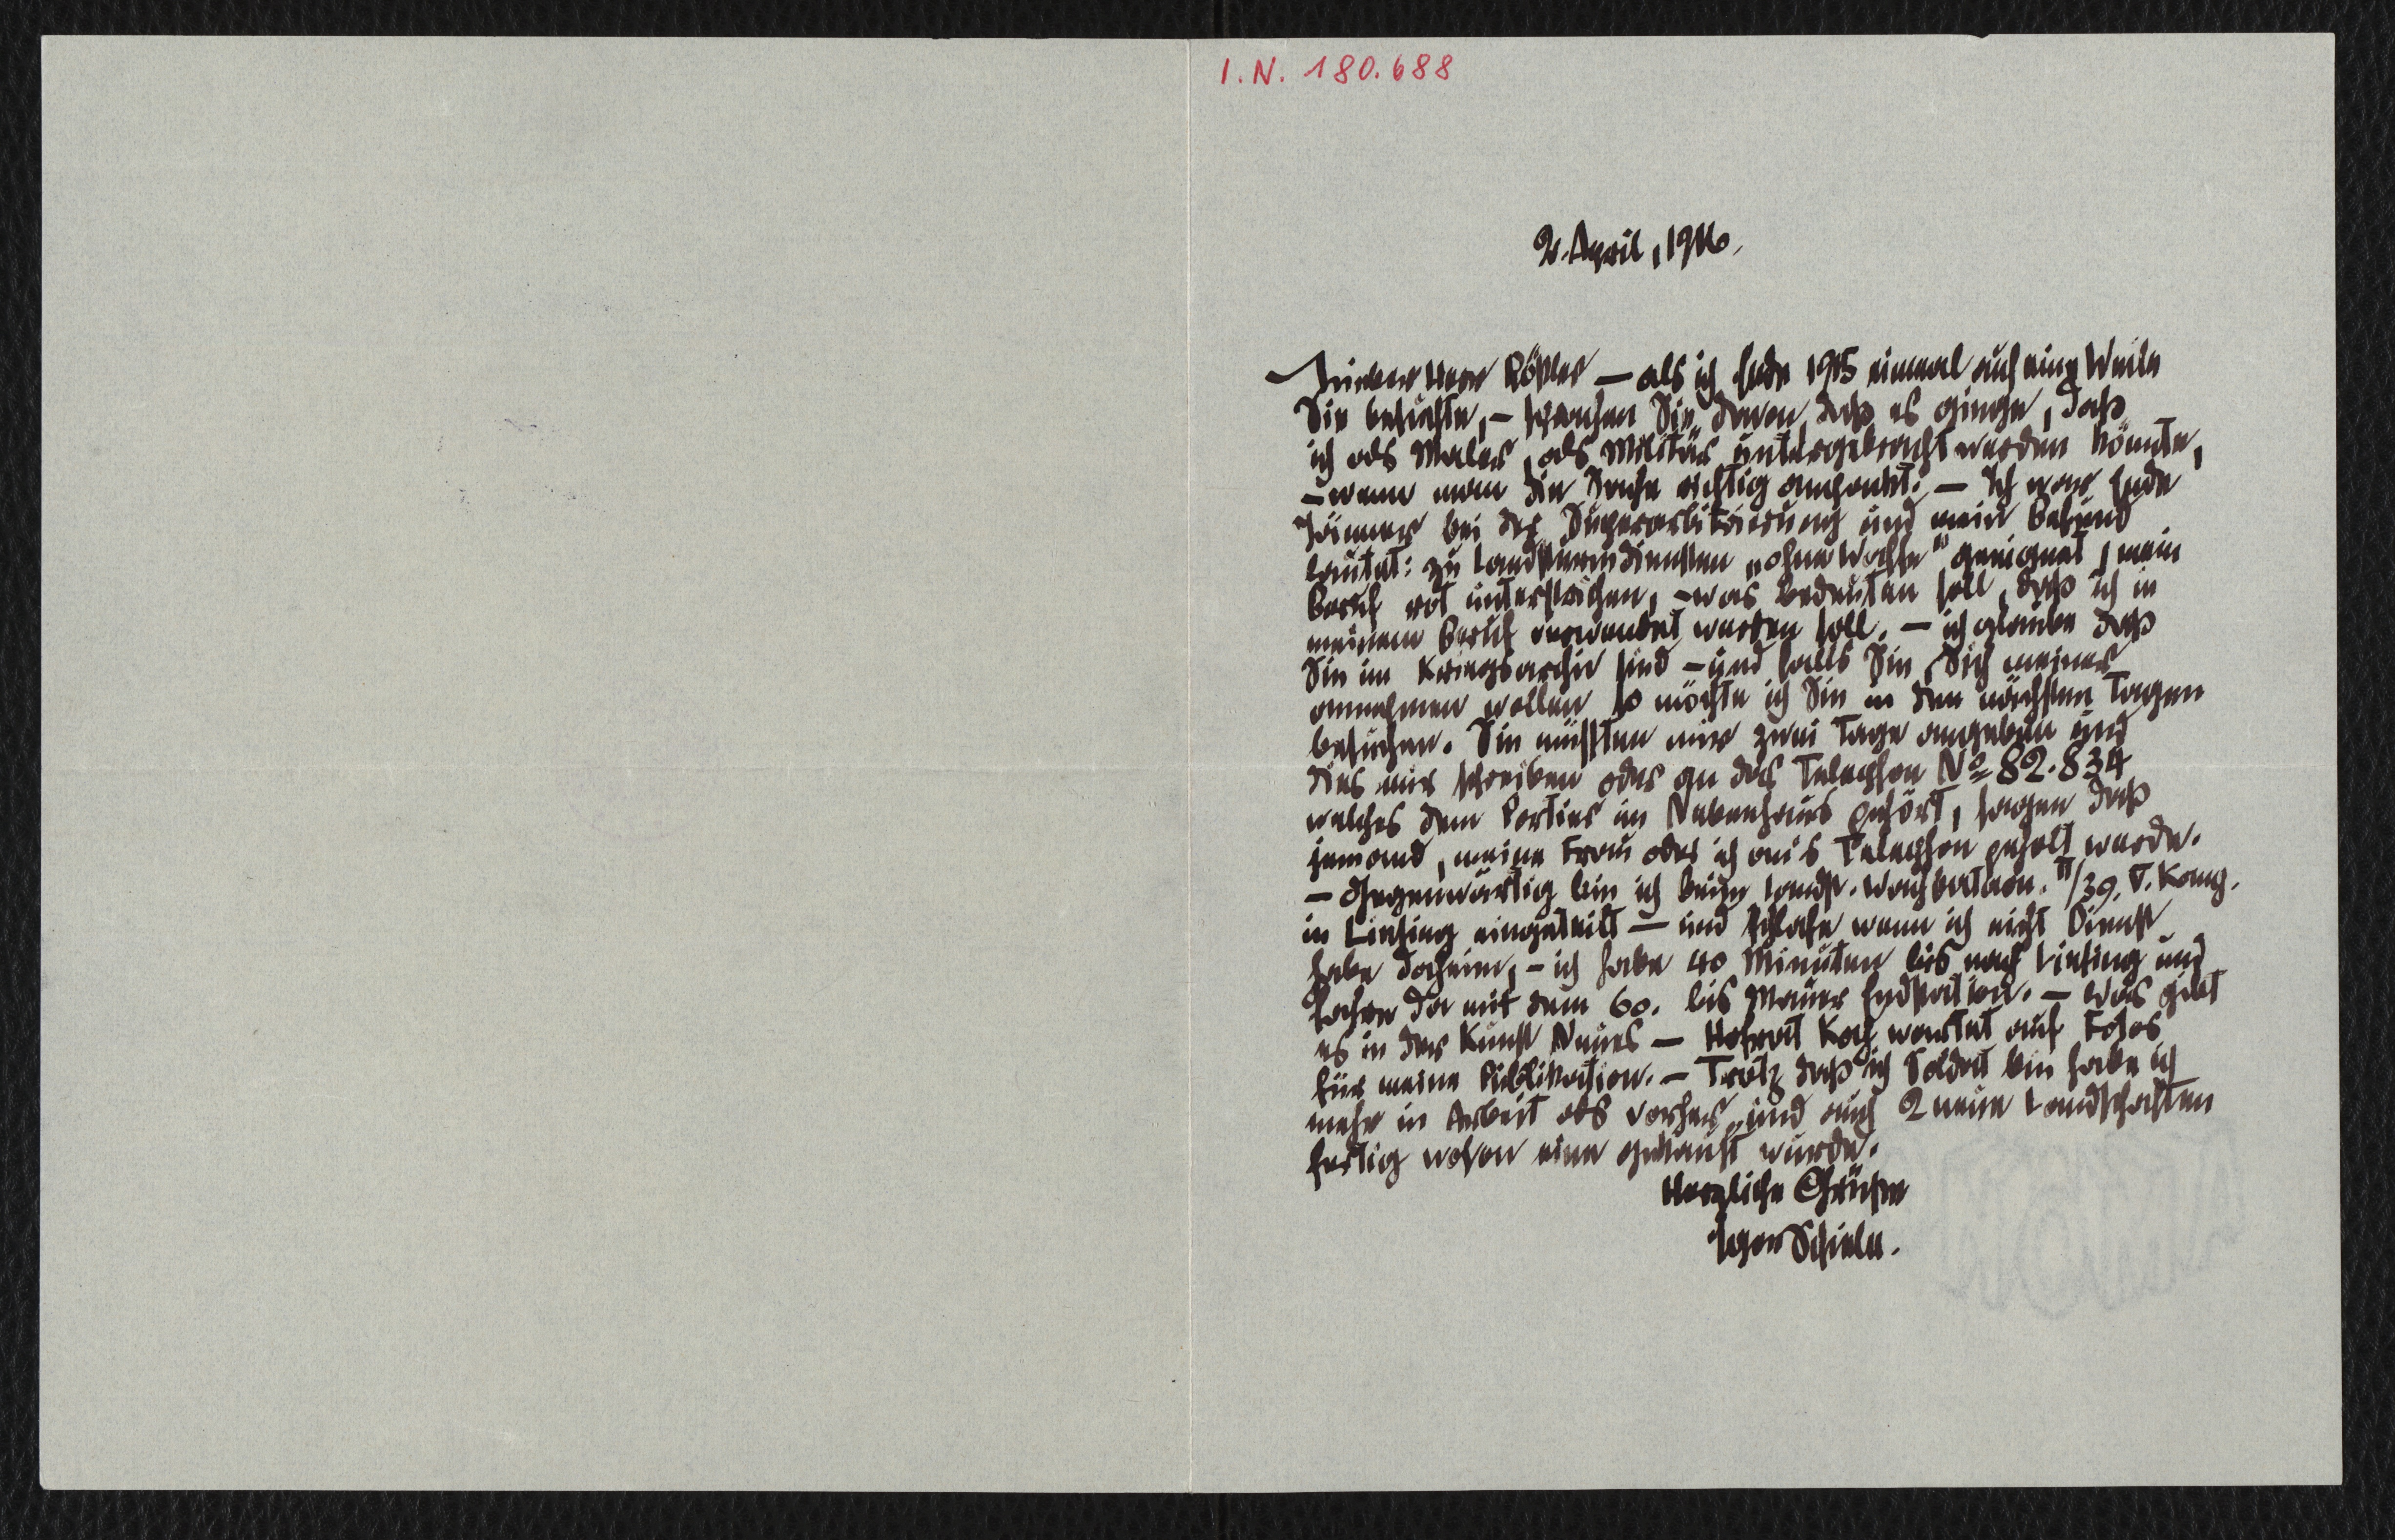 I.N. 180.688
2. April, 1916.
Lieber Herr Rößler — als ich Ende 1915 einmal auf eine Weile
Sie besuchte, – sprachen Sie davon daß es ginge, daß
ich als Maler, als Militär untergebracht werden könnte,
– wenn man die Sache richtig anpackt. — Ich war Ende
Jänner bei der Superarbitrierung und mein Befund
lautet: zu Landsturmdiensten „ohne Waffe" geeignet, mein
Beruf rot unterstrichen, – was bedeuten soll, daß ich in
meinem Beruf verwendet werden soll. — ich glaube daß
Sie im Kriegsarchiv sind – und falls Sie Sich meiner
annehmen wollen so möchte ich Sie in den nächsten Tagen
besuchen. Sie müßten mir zwei Tage angeben und
dies mir schreiben oder an das Telephon № 82.834
welches dem Portier im Nebenhaus gehört, sagen daß
jemand, meine Frau oder ich an's Telephon geholt werde.
– Gegenwärtig bin ich beim Landst. Wachbataon. II/39. V. Komp.
in Liesing eingeteilt — und schlafe wenn ich nicht Dienst
habe daheim, – ich habe 40 Minuten bis nach Liesing und
fahre da mit dem 60. bis Mauer Endstation. — Was gibt
es in der Kunst Neues — Hofrat Koch wartet auf Fotos
für meine Publikation. – Trotz daß ich Soldat bin habe ich
mehr in Arbeit als vorher, und auch 2 neue Landschaften
fertig wovon eine gekauft wurde.
Herzliche Grüße
Egon Schiele.